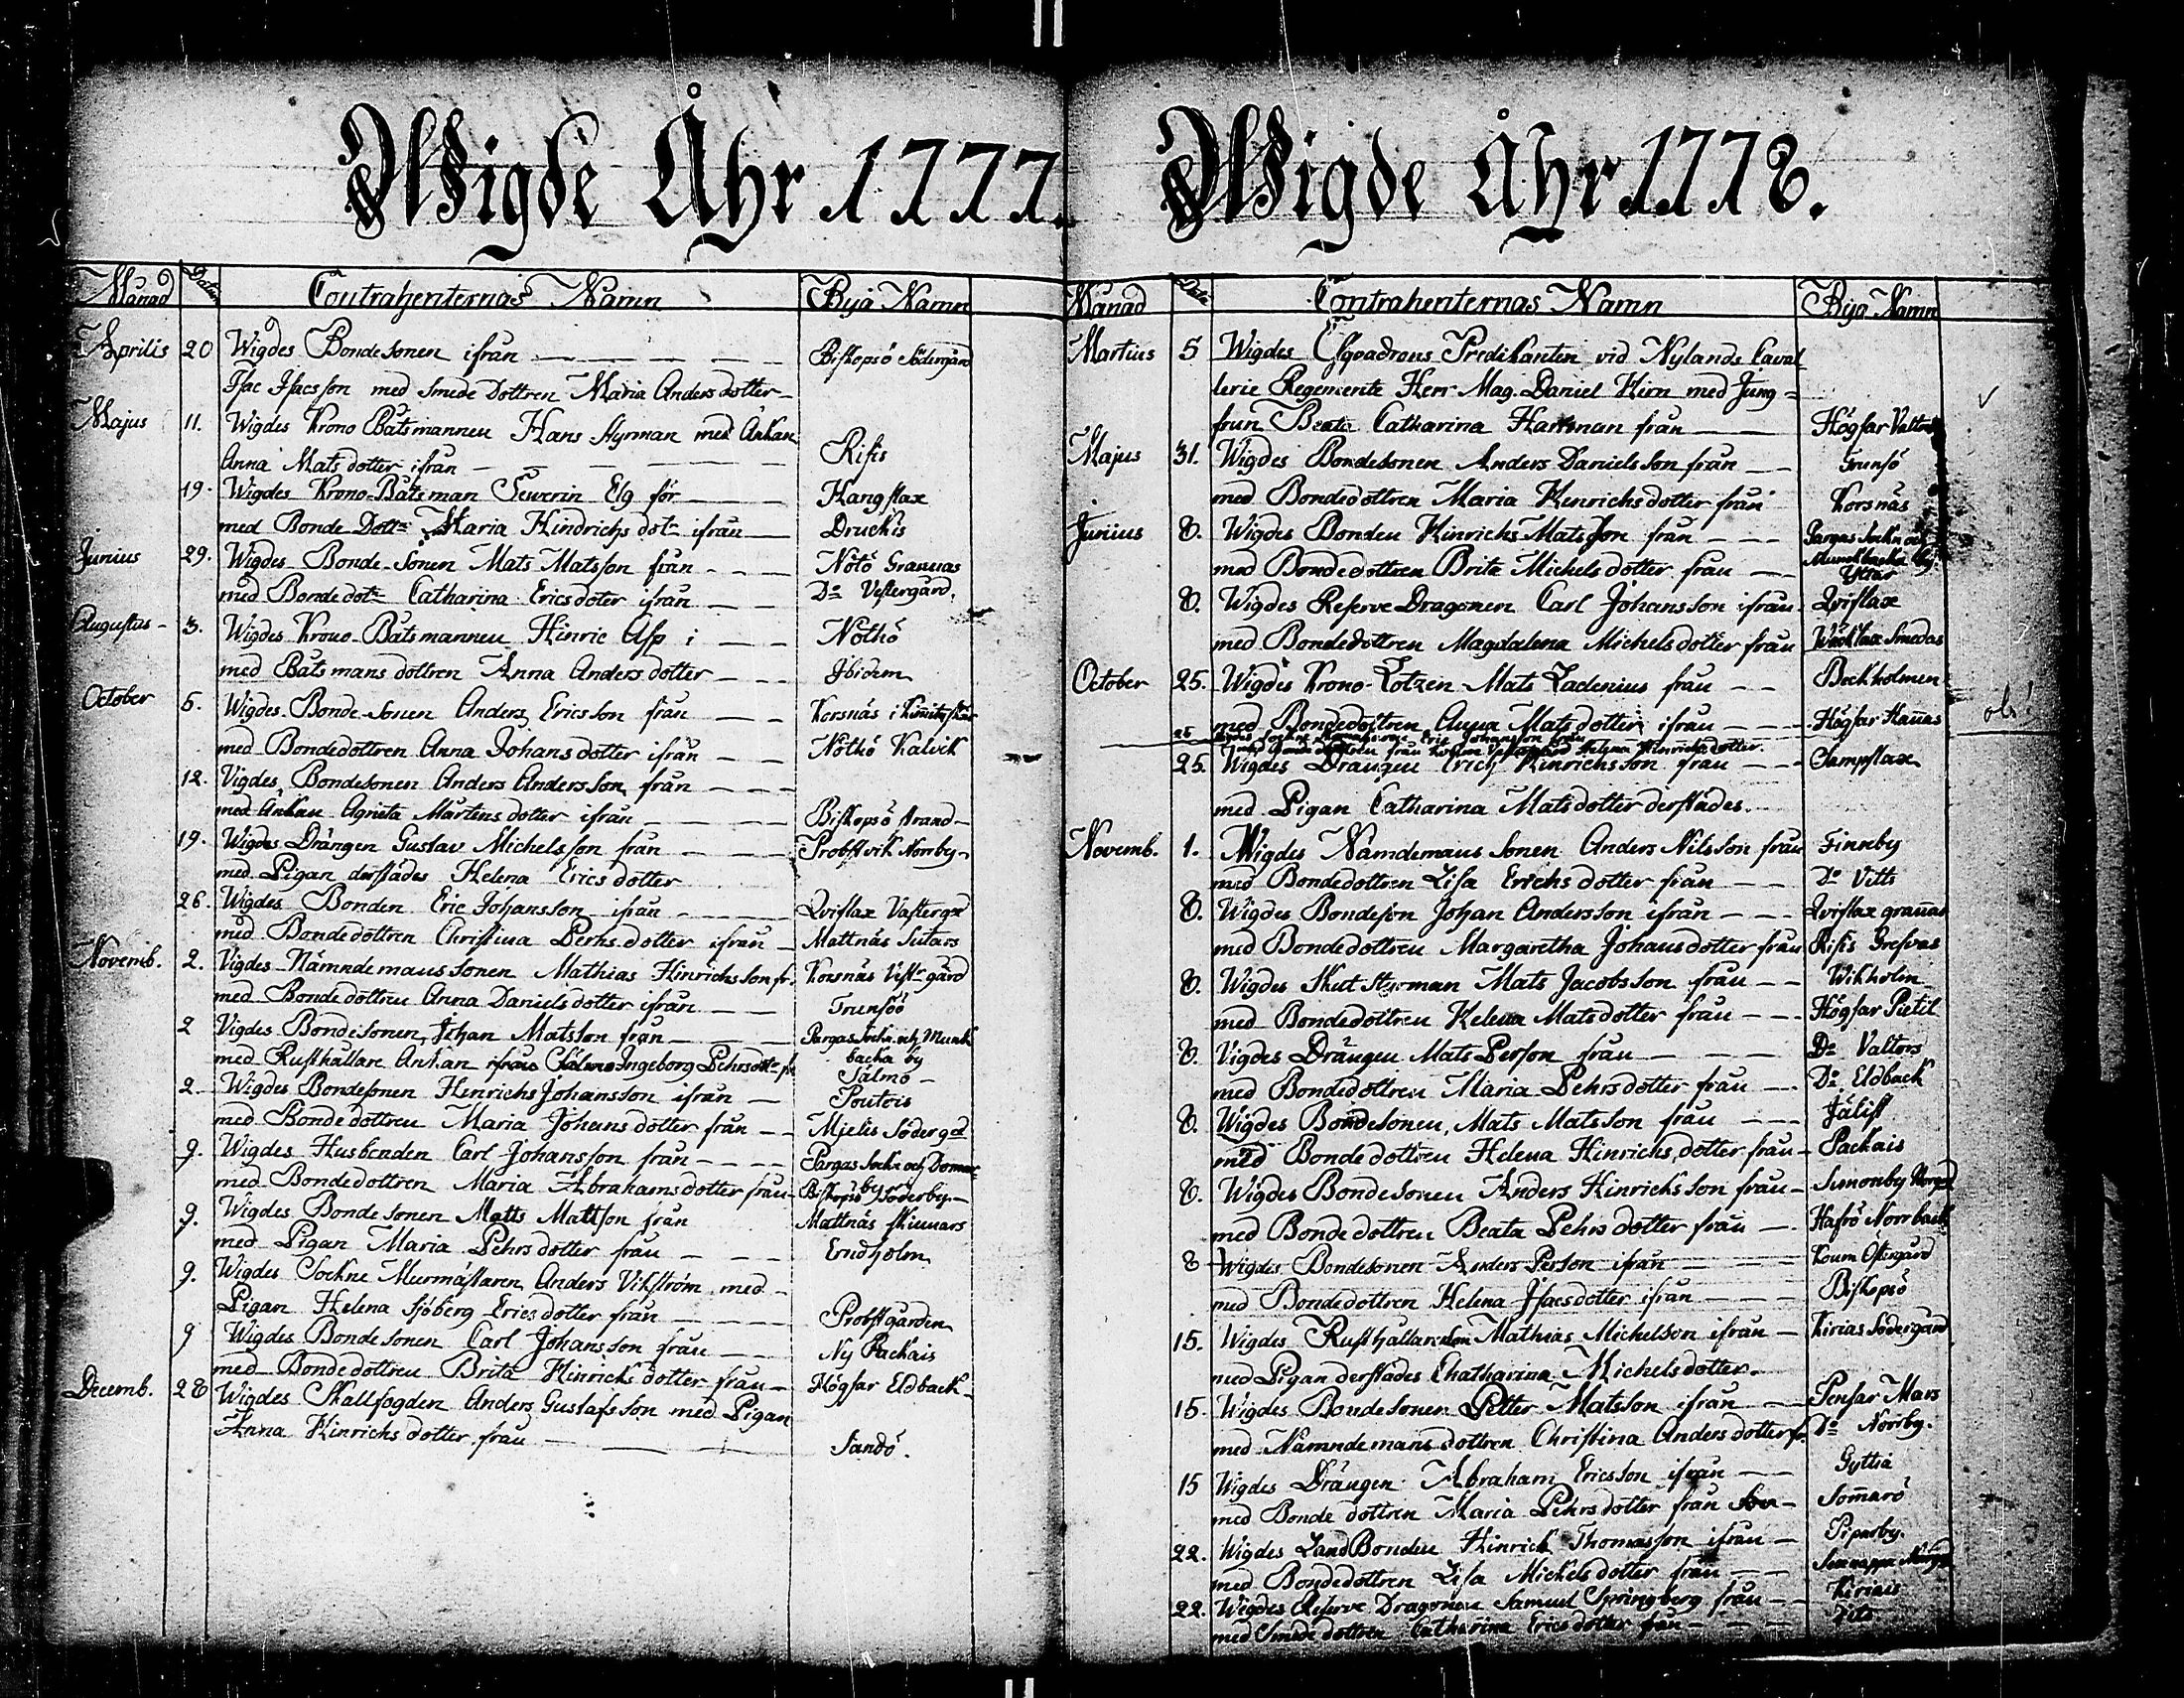 Wigde Åhr 1777.
Månad Datum Contrahenternas Namn Bya Namn
Aprilis 20 Wigdes Bondesonen ifrån Biskopsö Södergård
Isac Isacsson med Smede Dottren Maria Andersdotter
Majus 11. Wigdes Krono Båtsmannen Hans Styrman med Änkan
Anna Matsdotter ifrån Risis
19. Wigdes Krono-Båtsman Sewerin Elg för Kangslax
med Bonde Dottr Maria Hindrichs dotr ifrån Druckis
Junius 29. Wigdes Bonde-Sonen Mats Matsson från Nötö Grannas
med Bonde dotr Catharina Ericsdoter ifrån Do Vestergård.
Augustus 3. Wigdes Krono-Båtsmannen Hinric Asp i Nötkö
med Båtsmansdottren Anna Andersdotter Ibidem
October 5. Wigdes Bonde-Sonen Anders Ericsson från Korsnäs i
med Bondedottren Anna Johansdotter ifrån Nötkö Kalvik
12. Vigdes Bondesonen Anders Andersson från
med Änkan Agneta Mårtensdotter ifrån Biskopsö strand
19. Wigdes Drängen Gustav Michelsson från Probstvik Norrby
med Pigan derstädes Helena Ericsdotter
26. Wigdes Bonden Eric Johansson ifrån Qvislax Vastergd
med Bondedottren Christina Perhsdotter ifrån Mattnäs Sutars
Novemb. 2. Vigdes Nämndemanssonen Mathias Hinrichsson fr. Korsnäs Vestrgård
med Bondedottren Anna Danielsdotter ifrån Trunsöö
2 Vigdes Bondesonen Johan Matsson från Pargas Sockn och Munk
med Rusthållare Änkan ifrån Ingeborg Pehrsdotr fr. backa by
Sälmo
2. Wigdes Bondesonen Henrichs Johansson ifrån Poutois
med Bondedottren Maria Johansdotter från Mjelis Södergd
9. Wigdes Husbonden Carl Johansson från Pargas Sockn och
med Bondedottren Maria Abrahamsdotter från by Biskopsö Söderby
9. Wigdes Bondesonen Matts Mattson från Mattnäs Skinnars
med Pigan Maria Pehrsdotter från Erndholm
9. Wigdes Sockne Murmästaren Anders Vikström med
Pigan Helena Sjöberg Ericsdotter från Probstgården
9 Wigdes Bondesonen Carl Johansson från Ny Packais
med Bondedottren Brita Hinrichsdotter från Högsar Eldback
Decemb. 28 Wigdes Skallfogden Anders Gustafsson med Pigan
Anna Hinrichsdotter från Sandö.
Wigde Åhr 1778.
Månad Contrahenternas Namn Bya Namn
Martius 5 Wigdes Esquadrons Predikanten vid Nylands Caval
lerie Regemente Herr Mag. Daniel Hirn med Jung=
frun Beata Catharina Hartman från Högsar Valtors
Majus 31. Wigdes Bondesonen Anders Danielsson från Trunsö
med Bondedottren Maria Henrichsdotter från Korsnäs
Junius 8. Wigdes Bonden Hinrichs Matsson från Pargas Sockn och
Munckbacka by
med Bondedottren Brita Michelsdotter från
8. Wigdes Reserve Dragonen Carl Johansson ifrån Qvislax
med Bondedottren Magdalena Michelsdotter från Smedas
October 25. Wigdes Krono-Lotzen Mats Ladenius från Bockholmen
med Bondedottren Anna Matsdotter ifrån Högsar Hannas
obs!
25 Eric Johansson från
med dottren från Helena Hinrichsdotter.
25. Wigdes Drängen Erich Hinrichsson från Sampslax
med Pigan Catharina Matsdotter derstädes.
Novemb. 1. Wigdes Nämdemans Sonen Anders Nilsson från Finnby
med Bondedottren Lisa Erichsdotter från Do Vitts
8. Wigdes Bondeson Johan Andersson ifrån Qvislax grannas
med Bondedottren Margaretha Johansdotter från Risis Grefvas
8. Wigdes Skutstyrman Mats Jacobsson från Wikholm
med Bondedottren Helena Matsdotter från Högsar Pietil
8. Vigdes Drängen Mats Person från Do Valtors
med Bondedottren Maria Pehrsdotter från Do Eldback
8. Wigdes Bondesonen Mats Matsson från Jälist
med Bondedottren Helena Hinrichsdotter från Packais
8. Wigdes Bondesonen Anders Hinrichsson från Simonby
med Bondedottren Beata Pehrsdotter från Hafrö Norrback
8 Wigdes Bondesonen Anders Person ifrån Koum Östergård
med Bondedottren Helena Isacsdotter ifrån Biskopsö
15. Wigdes Rusthållarson Mathias Michelson ifrån Kirias Södergård
med Pigan derstädes Chatharina Michelsdotter.
15. Wigdes Bondesonen Petter Matsson ifrån Pensar Mars
med Nämndemansdottren Christina Andersdotter fr. Do Norrby.
15 Wigdes Drängen Abraham Ericsson ifrån Gyttia
med Bonde dottren Maria Pehrsdotter från Somarö
22. Wigdes LandBonden Hinrich Thomasson ifrån Piparby.
med Bondedottren Lisa Michelsdotter från
22. Wigdes Reserve Dragonen Samuel Springberg från Kiriais
med Smede dottren Catharina Ericsdotter från Dito